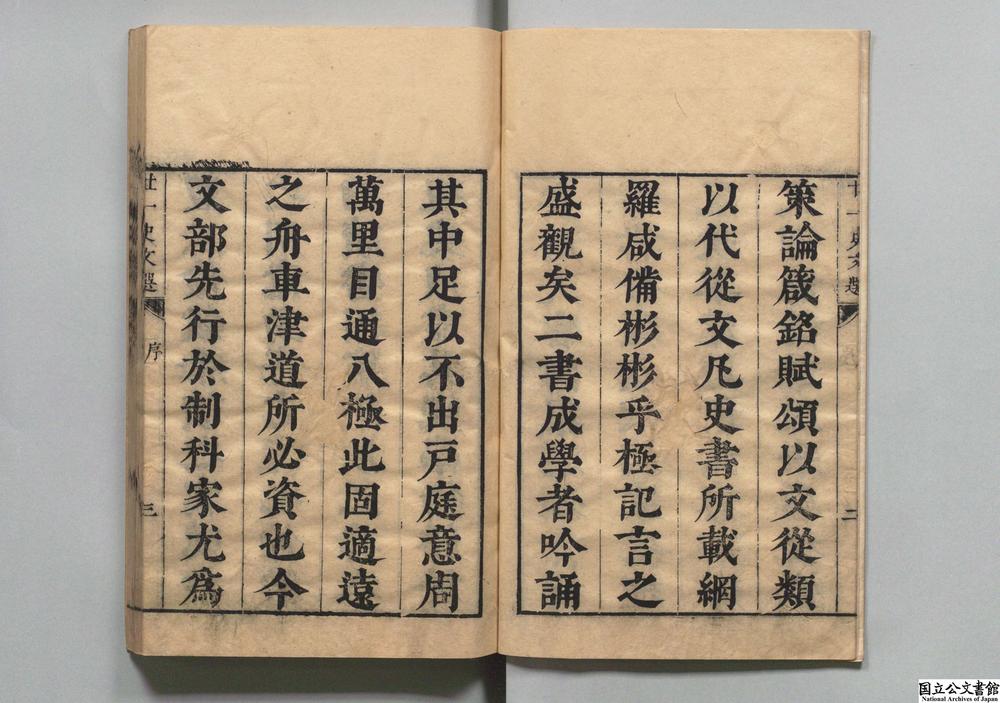 策論箴銘賦頌以文從類
以代從文凡史書所載網
羅咸備彬彬乎極記言之
盛觀矣二書成學者吟誦
其中足以不出戸庭意周
萬里目通八極此固適遠
之舟車津道所必資也今
文部先行於制科家尤爲
廿一史文選
序
三
廿一史文選
二
国立公文書館
National Archives of Japan